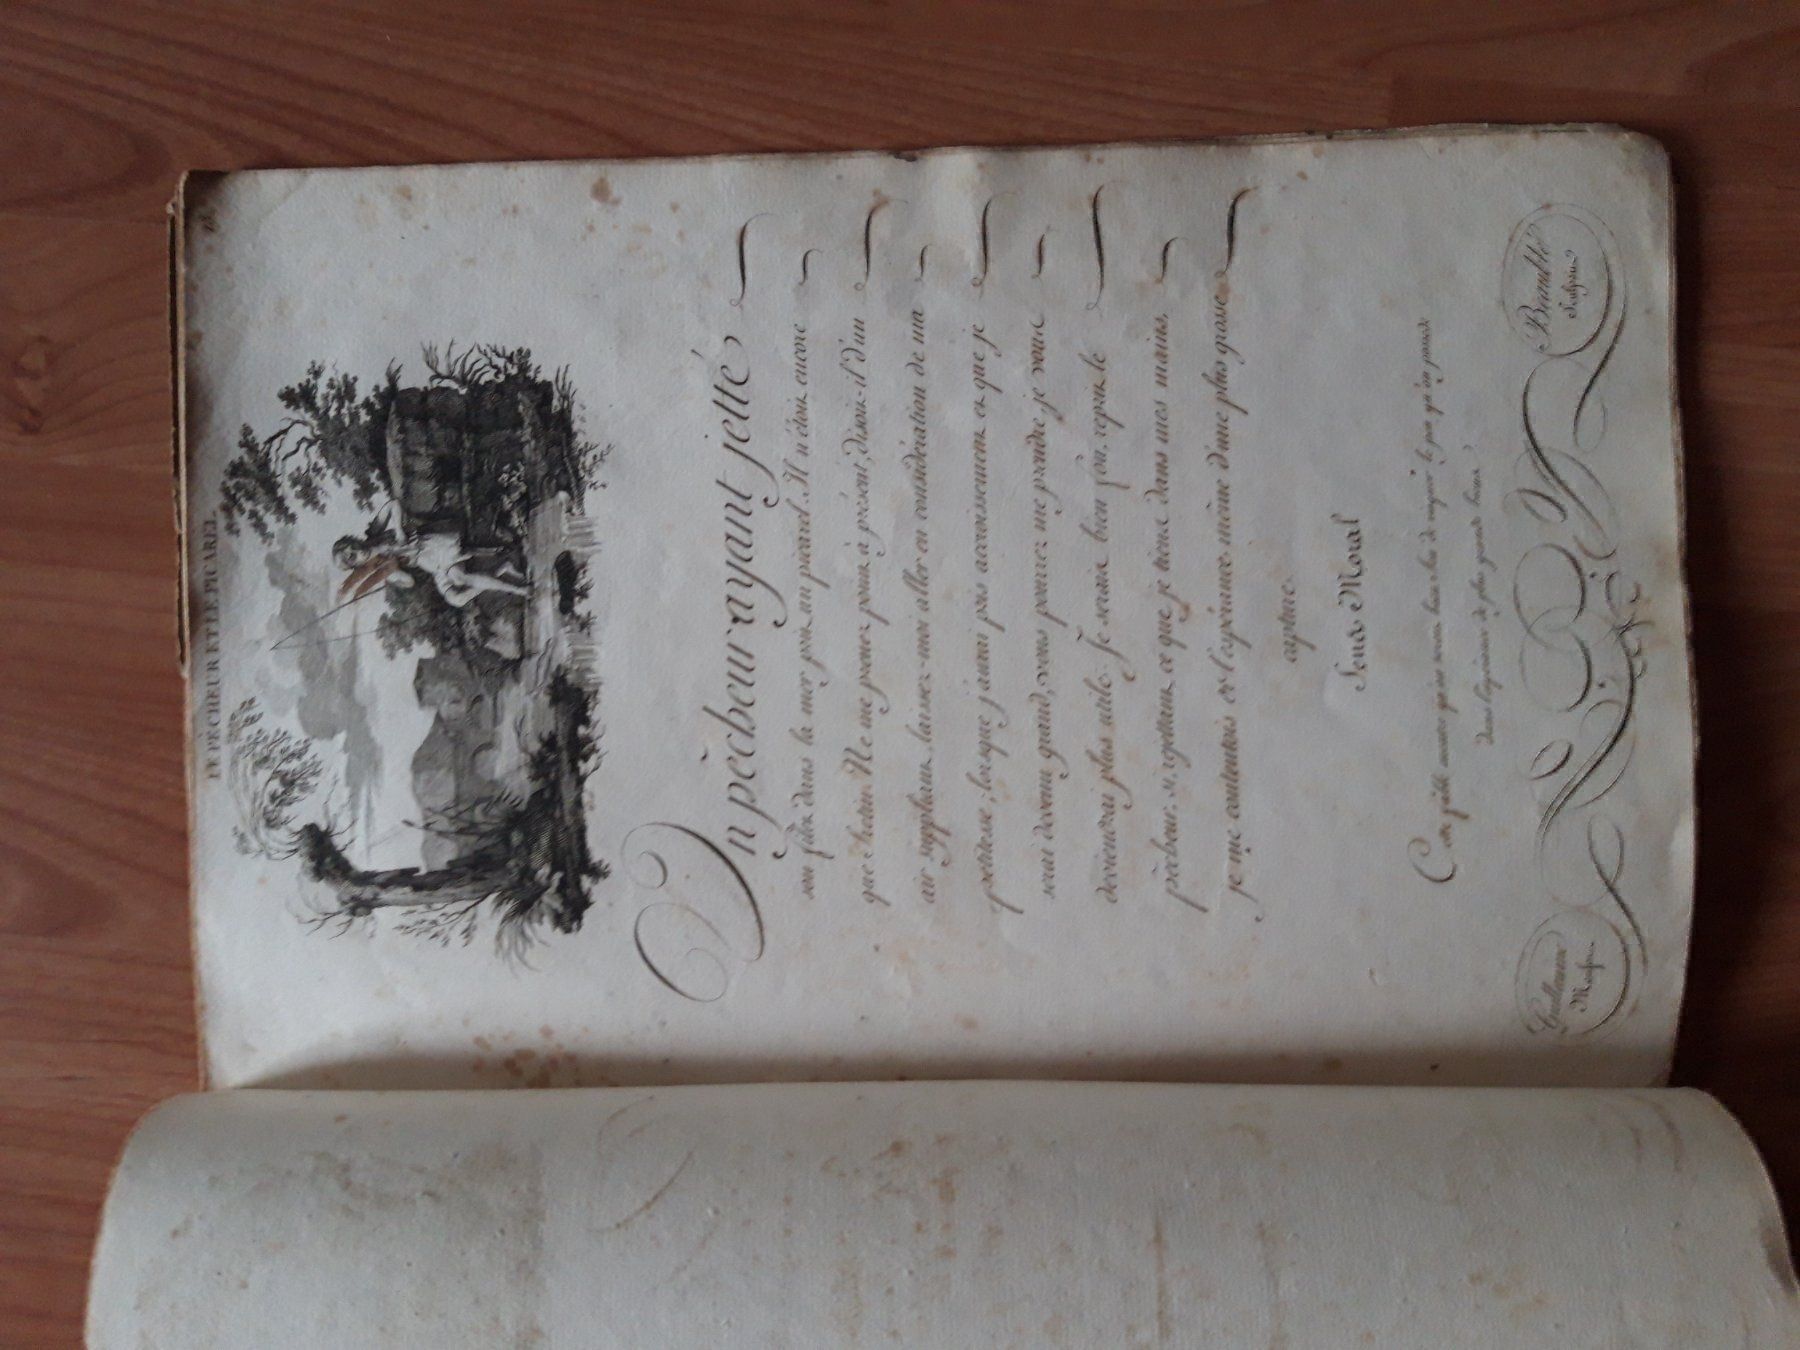 LE PÊCHEUR ET LE PICAREL.
Un pêcheur ayant jetté
son filet dans la mer prit un picarel. Il n'étoit encore
que fretin. Ne me prenez point à présent, disoit-il d'un
air suppliant, laissez-moi aller en considération de ma
petitesse, lorsque j'aurai pris accroissement et que je
serai devenu grand, vous pourrez me prendre, je vous
deviendrai plus utile. Je serais bien fou, reprit le
pêcheur, si, rejettant ce que je tiens dans mes mains,
je me contentais de l'espérance même d'une plus grosse
capture.
Sens Moral
Cette fable montre qu'on seroit bien fou de rejetter le peu qu'on possède
dans l'espérance de plus grands biens.
Guillaume
Beaublé
Sculpsit